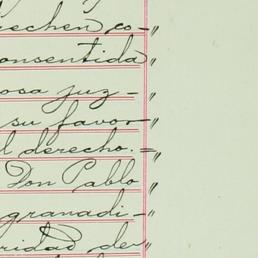 echen co-"
onsentida "
osa juz- "
su favor "
l derecho.="
Don Pablo "
granadi-"
ridad de "